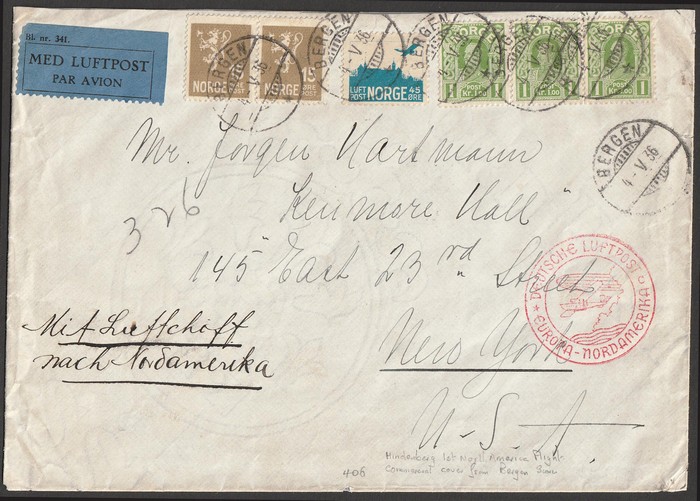 Bl. nr. 341.
MED LUFTPOST
PAR AVION
NORGE
POST
NORGE
15
ØRE
POST
LUFT
POST
NORGE
45
ØRE
NORGE
POST
Kr. 1.00
1
NORGE
1 POST 1
Kr. 1.00
NORGE
1 POST 1
Kr. 1.00
BERGEN
BERGEN
BERGEN
BERGEN
4-V 36
Mr. Jörgen Hartmann
"Kenmore Hall"
145 East 23rd Street
New York
U-S-A.
326
Mit Luftschiff
nach Nordamerika
DEUTSCHE LUFTPOST
EUROPA-NORDAMERIKA
406
Hindenberg 1st North America Flight
cover from Bergen